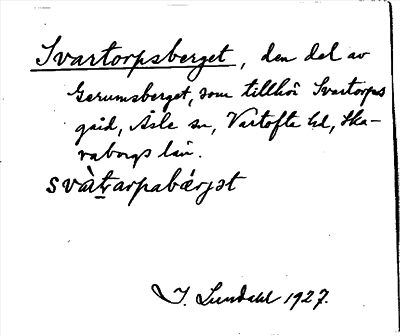 Svartorpsberget, den del av
Gerumsberget, som tillhör Svartorps
gård, Åsle sn, Vartofta hd, Ska-
raborgs län.
svàt̠arpabærjət
I. Lundahl 1927.